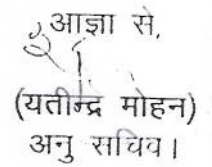 आज्ञा से,
(यतीन्द्र मोहन)
अनु सचिव।